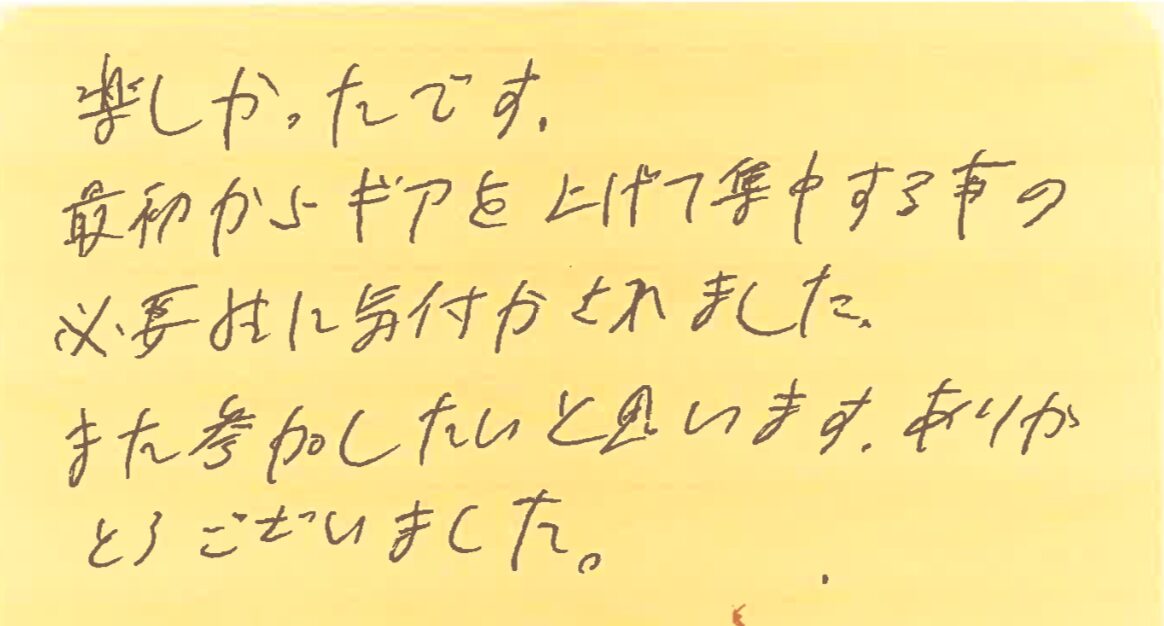 楽しかったです.
最初からギアを上げて集中する事の
必要性に気付かされました.
また参加したいと思います.ありが
とうございました。